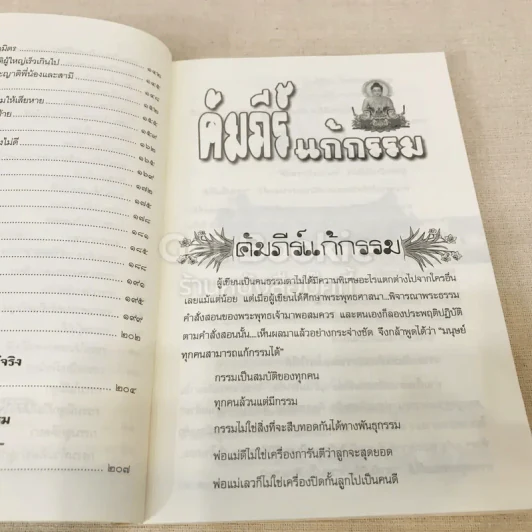 มิตร
ติผู้ใหญ่เร็วเกินไป ๑๔๒
ะญาติพี่น้องและสามี ๑๔๕
๑๔๘
มให้เสียหาย ๑๕๒
ร้าย ๑๕๕
๑๕๙
งไม่ดี ๑๖๒
๑๖๕
๑๖๙
๑๗๒
๑๗๕
๑๗๘
๑๘๑
๑๘๕
๑๘๘
๑๙๑
๑๙๕
๑๙๙
๒๐๒
จริง
๒๐๔
รม
๒๐๗
คัมภีร์แก้กรรม
คัมภีร์แก้กรรม
ผู้เขียนเป็นคนธรรมดาไม่ได้มีความพิเศษอะไรแตกต่างไปจากใครอื่น
เลยแม้แต่น้อย แต่เมื่อผู้เขียนได้ศึกษาพระพุทธศาสนา..พิจารณาพระธรรม
คำสั่งสอนของพระพุทธเจ้ามาพอสมควร และตนเองก็ลองประพฤติปฏิบัติ
ตามคำสั่งสอนนั้น...เห็นผลมาแล้วอย่างกระจ่างชัด จึงกล้าพูดได้ว่า “มนุษย์
ทุกคนสามารถแก้กรรมได้”
กรรมเป็นสมบัติของทุกคน
ทุกคนล้วนแต่มีกรรม
กรรมไม่ใช่สิ่งที่จะสืบทอดกันได้ทางพันธุกรรม
พ่อแม่ดีไม่ใช่เครื่องการันตีว่าลูกจะสุดยอด
พ่อแม่เลวก็ไม่ใช่เครื่องปิดกั้นลูกไปเป็นคนดี